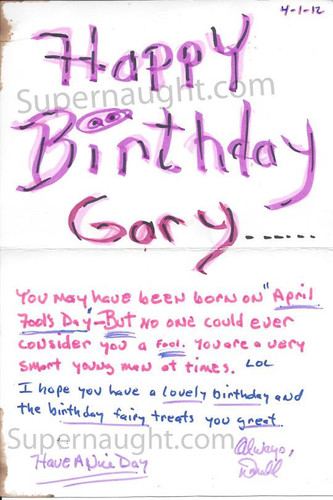 4-1-12
Happy
Supernaught.com
Birthday
Gary......
You may have been born on "April
Fool's Day" - But no one could ever
consider you a fool. You are a very
smart young man at times. LOL
I hope you have a lovely birthday and
the birthday fairy treats you great.
Supernaught.com
Always,
Have A Nice Day